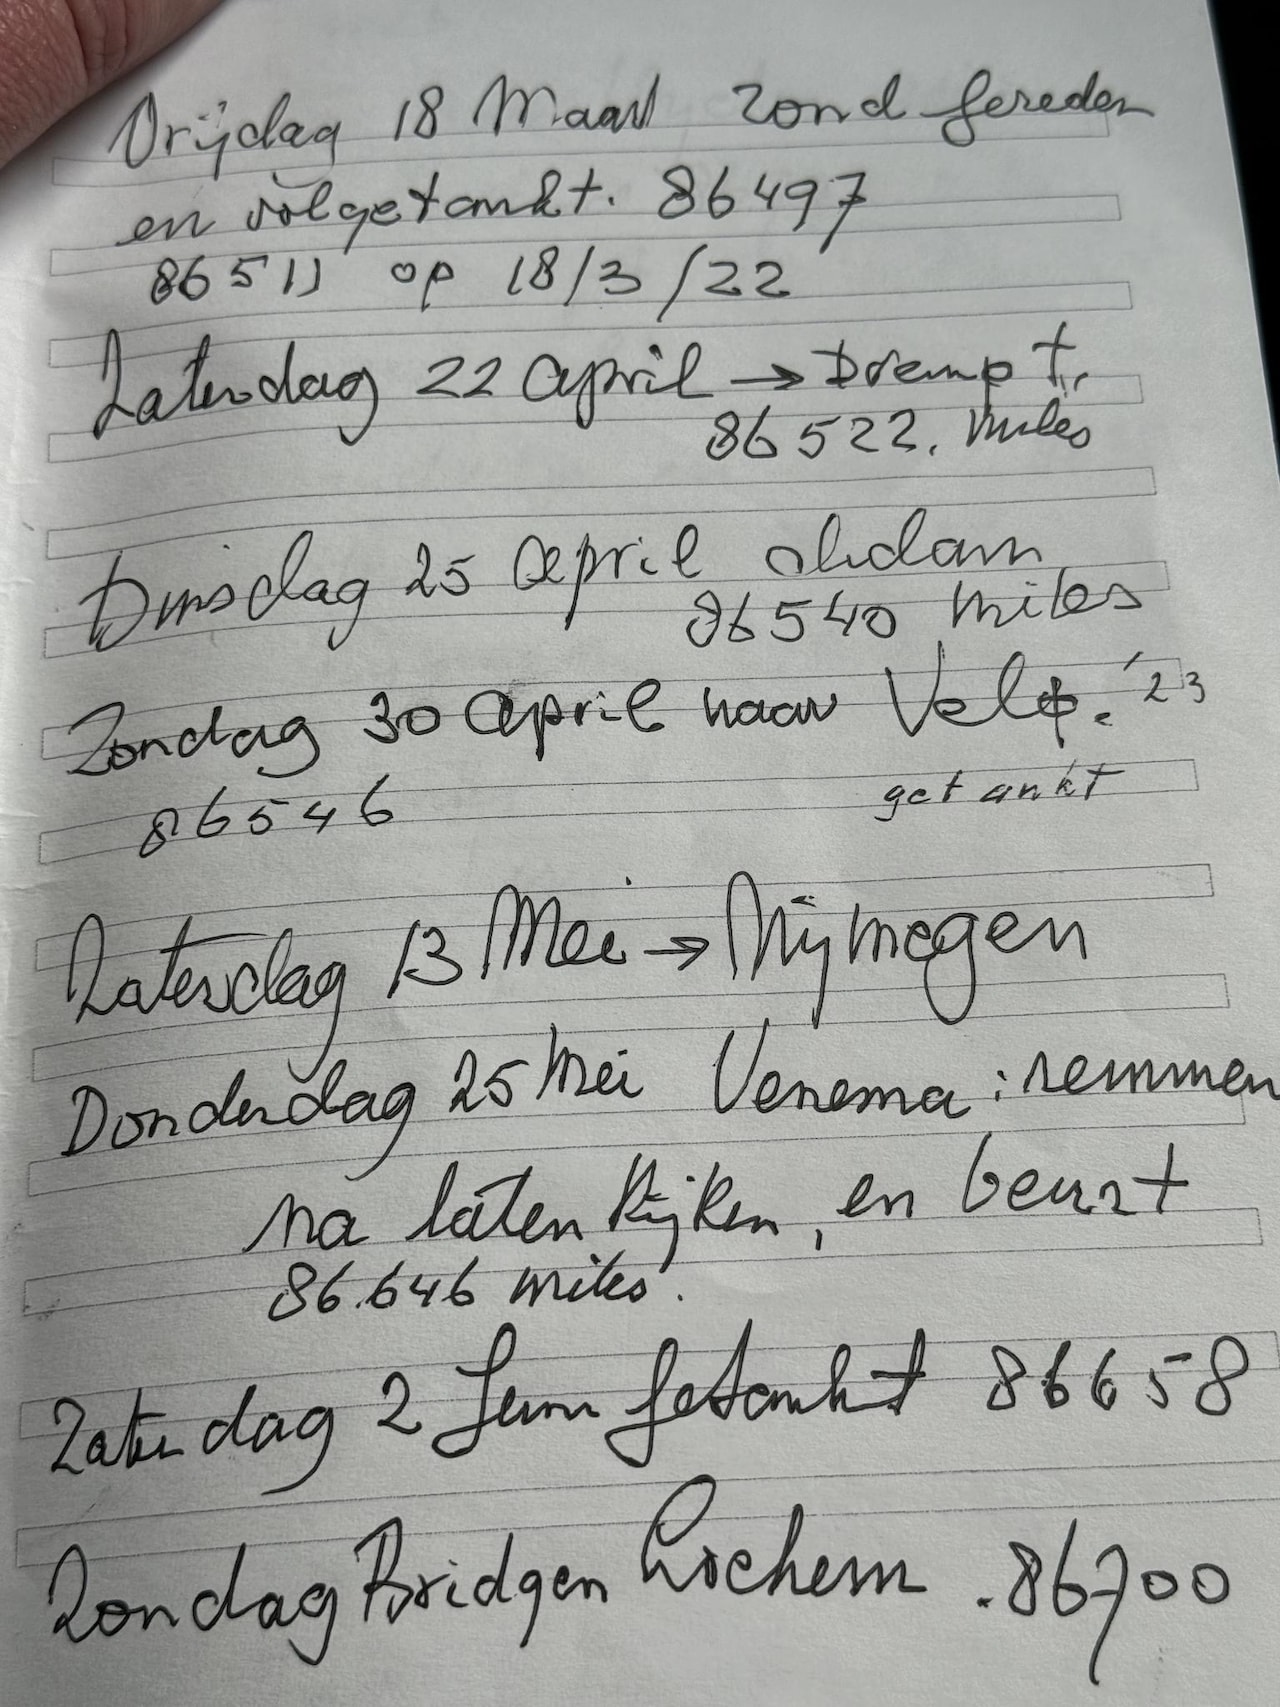 Vrijdag 18 Maart rond gereden
en volgetankt. 86497
86511 op 18/3/22
Zaterdag 22 april → Drempt,
86522. miles
Dinsdag 25 april
86540 miles
Zondag 30 april naar Velp. '23
86546 getankt
Zaterdag 13 Mei → Nijmegen
Donderdag 25 Mei Venema: remmen
na laten kijken, en beurt
86.646 miles.
Zaterdag 2 Juni getankt 86658
Zondag Bridgen Lochem .86700